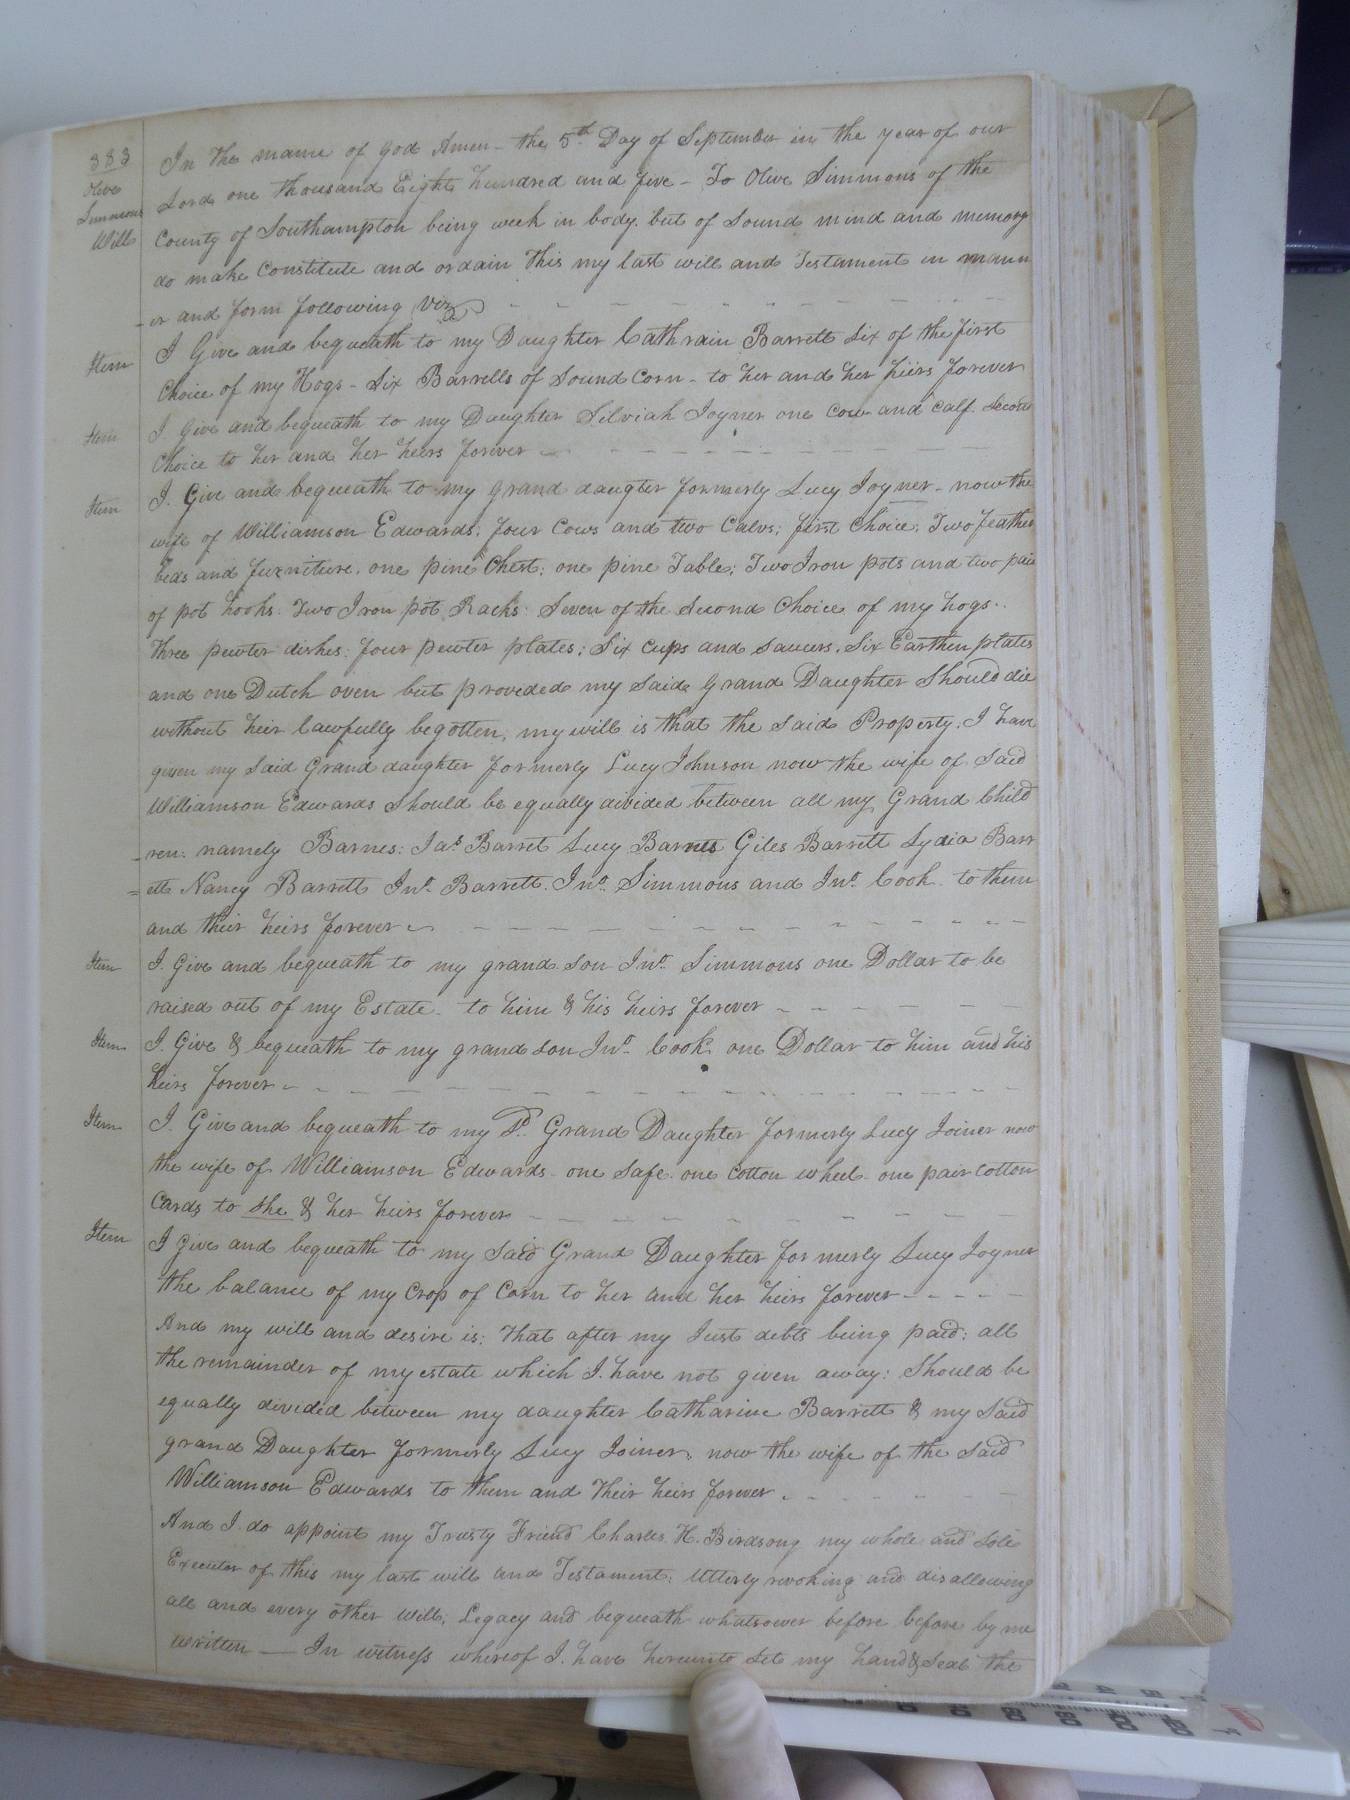 383
Olive
Simmons
Will
In the mame of god Amen - the 5th Day of September in the year of our
Lord one thousand Eight hundred and five - To Olive Simmons of the
County of Southampton being week in body. but of Sound mind and memory
do make Constitute and ordain this my last will and Testament in mann
-er and form following (Viz)
Item I Give and bequeath to my Daughter Cathrain Barrett Six of the first
Choice of my Hogs - Six Barrells of Sound Corn - to her and her heirs forever
Item I. Give and bequeath to my Daughter Silviah Joyner one cow and calf. Second
Choice to her and her heirs forever
Item I. Give and bequeath to my grand daugter formerly Lucy Joyner - now the
wife of Williamson Edwards; four Cows and two Calvs; first Choice; Two feather
beds and furniture. one pine Chest; one pine Table; Two Iron pots and two pair
of pot hooks: Two Iron pot Racks: Seven of the Second Choice of my hogs.
three pewter dishes; four pewter plates; Six cups and saucers. Six Earthen plates
and one Dutch oven but proveded my Said Grand Daughter Should die
without heir lawfully begotten, my will is that the said Property. I have
given my Said Grand daughter formerly Lucy Johnson now the wife of Said
Williamson Edwards Should be equally divided between all my Grand Child
-ren: namely Barnes: Jas. Barret Lucy Barnes Giles Barrett Lydia Barr
=ett Nancy Barrett Jno. Barrett. Jno. Simmons and Jno. Cook. to them
and their heirs forever
Item I. Give and bequeath to my grand son Jno. Simmons one Dollar to be
raised out of my Estate - to him & his heirs forever
Item I. Give & bequeath to my grand son Jno. Cook one Dollar to him and his
heirs forever
Item I. Give and bequeath to my P. Grand Daughter formerly Lucy Joiner now
the wife of Williamson Edwards - one Safe. one Cotton wheel - one pair Cotton
Cards to she & her heirs forever
Item I Give and bequeath to my Said Grand Daughter formerly Lucy Joyner
the balance of my Crop of Corn to her and her heirs forever
And my will and desire is: that after my Just debts being paid: all
the remainder of my estate which I. have not given away: Should be
equally devided between my daughter Catharine Barrett & my Said
grand Daughter formerly Lucy Joiner, now the wife of the Said
Williamson Edwards to them and Their heirs forever
And I. do appoint my Trusty Friend Charles H. Birdsong my whole and Sole
Executor of this my last will and Testament; Utterly revoking and disallowing
all and every other will; Legacy and bequeath whatsoever before before by me
written — In witness whereof I. have hereunto Set my hand & Seal the